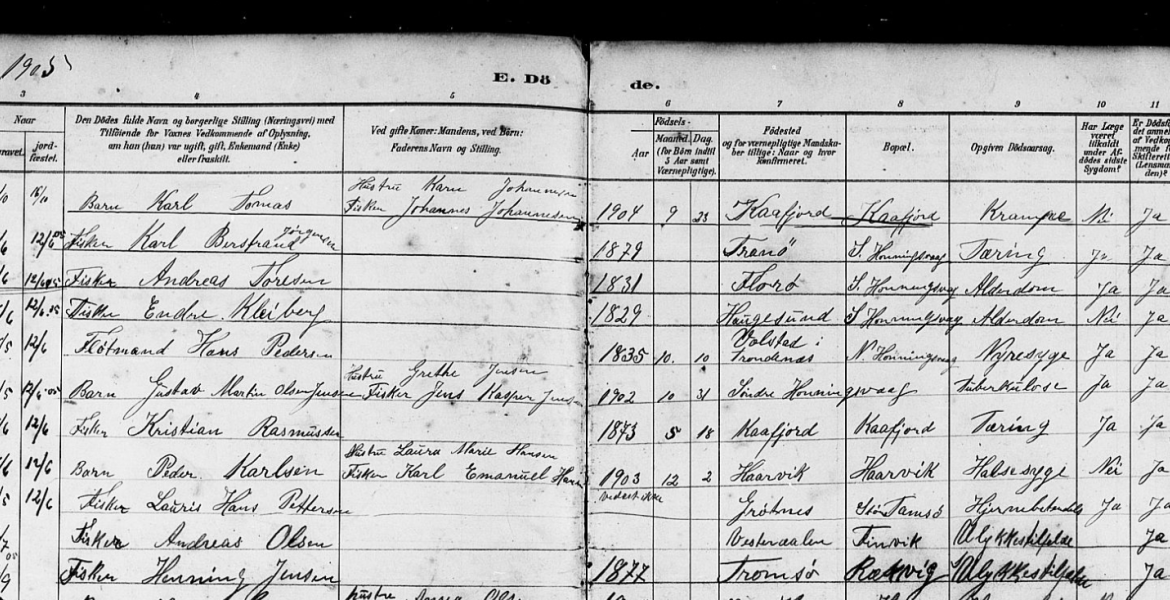 1905
E. Dö de.
3 4 5 6 7 8 9 10 11
Naar
jord-
fæstet.
Den Dödes fulde Navn og borgerlige Stilling (Næringsvei) med
Tilföiende for Voxnes Vedkommende af Oplysning,
om han (hun) var ugift, gift, Enkemand (Enke)
eller fraskilt.
Ved gifte Koner: Mandens, ved Börn:
Faderens Navn og Stilling.
Födsels-
Aar
Maaned. Dag.
(for Börn indtil
5 Aar samt
Værnepligtige).
Födested
og for værnepligtige Mandska-
ber tillige: Naar og hvor
konfirmeret.
Bopæl.
Opgiven Dödsaarsag.
Har Læge
været
tilkaldt
under Af-
dödes sidste
Sygdom?
Er Dödsf
det anmel
af Vedkom
mende fo
Skifteret
(Lensman
den)?
Hustru Karn Johannesen
Barn Karl Tomas Fisker Johannes Johannesen 1904 9 23 Kaafjord Kaafjord Krampe Nei Ja
12/6 05 Fisker Karl Berstrand Jørgensen 1879 Tranö S. Honningsvaag Tæring Ja Ja
12/6 05 Fisker Andreas Toresen 1831 Florö S. Honningsvag Alderdom Ja Ja
12/6 05 Fisker Endre Kleiberg 1829 Haugesund S Honningsvag Alderdom Nei Ja
12/6 Flötmand Hans Pedersen 1835 10. 10 i Trondenæs N. Honningsvaag Nyresyge Ja Ja
Hustru Grethe Jensen
12/6 05 Barn Gustav Martin Olsen Jensen Fisker Jens Kasper Jensen 1902 10 31 Söndre Honningsvaag Tuberkulose Ja Ja
12/6 Fisker Kristian Rasmussen 1873 5 18 Kaafjord Kaafjord Tæring Ja Ja
Hustru Laura Marie Hansen
12/6 Barn Peder Karlsen Fisker Karl Emanuel Han 1903 12 2 Haarvik Haarvik Halsesyge Nei Ja
12/6 Fisker Lauris Hans Pettersen vides ikke Grötnes Tamsö Ja Ja
Fisker Andreas Olsen Vesteraalen Finvik Ulykkestilfælde Ja
Fisker Henning Jensen 1877 Tromsö Ulykkestilfælde Ja
Hustru